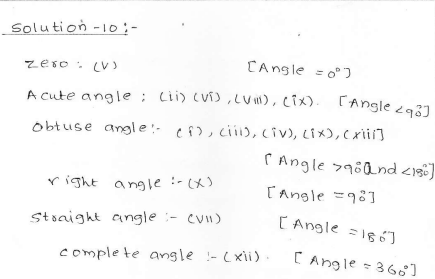 Solution-10:-
zero : (v) [Angle = 0°]
Acute angle : (ii) (vi), (viii), (ix). [Angle <90°]
Obtuse angle:- (i), (iii), (iv), (ix), (xiii)
[Angle >90° and <180°]
right angle :- (x) [Angle = 90°]
Straight angle :- (vii) [Angle = 180°]
complete angle :- (xii). [Angle = 360°]